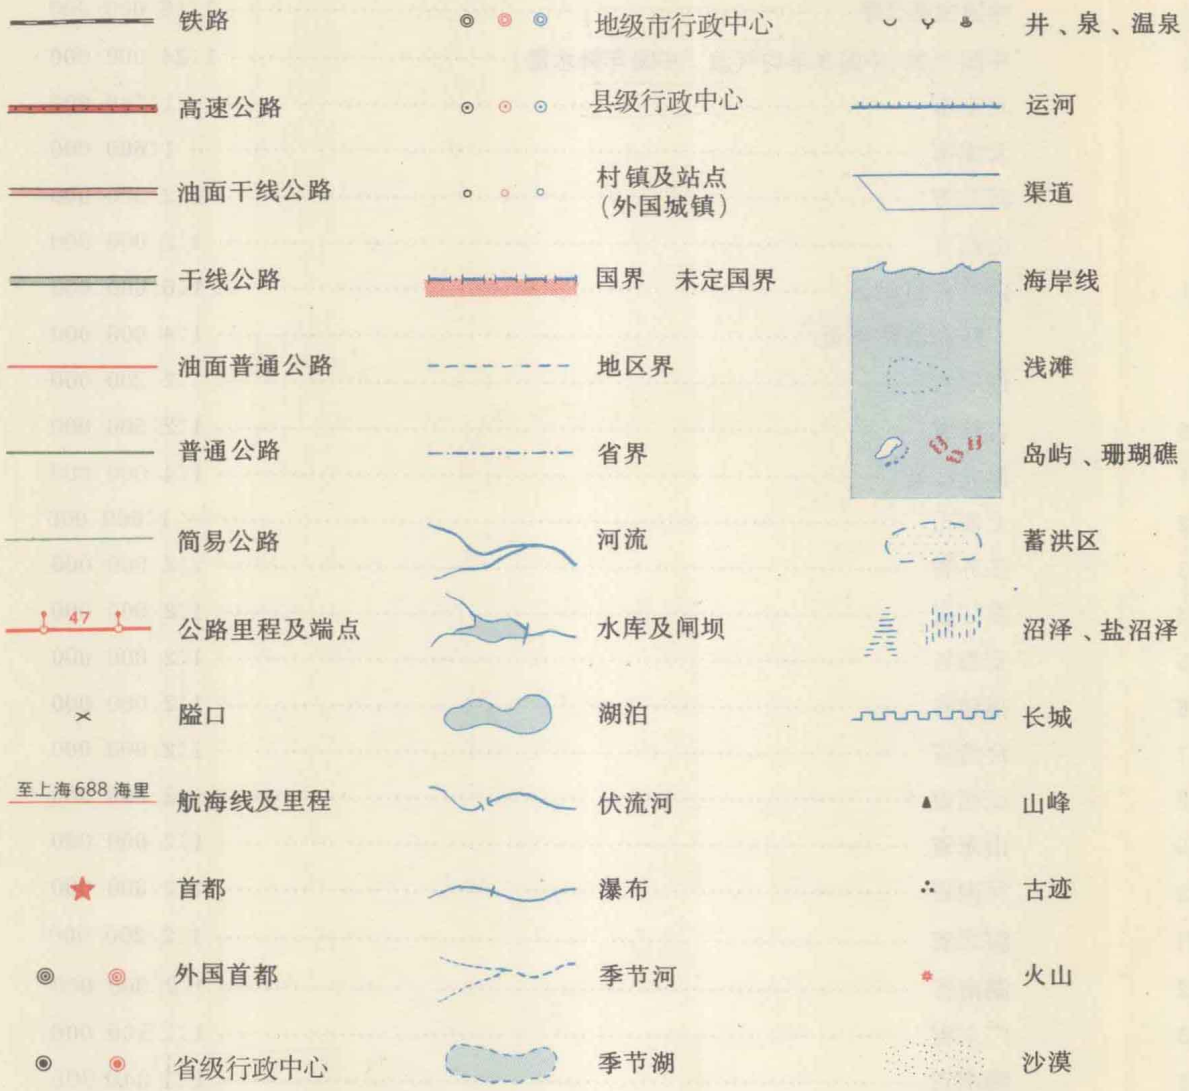 铁路
高速公路
油面干线公路
干线公路
油面普通公路
普通公路
简易公路
47
公路里程及端点
隘口
至上海688海里
航海线及里程
首都
外国首都
省级行政中心
地级市行政中心
县级行政中心
村镇及站点
(外国城镇)
国界 未定国界
地区界
省界
河流
水库及闸坝
湖泊
伏流河
瀑布
季节河
季节湖
井、泉、温泉
运河
渠道
海岸线
浅滩
岛屿、珊瑚礁
蓄洪区
沼泽、盐沼泽
长城
山峰
古迹
火山
沙漠